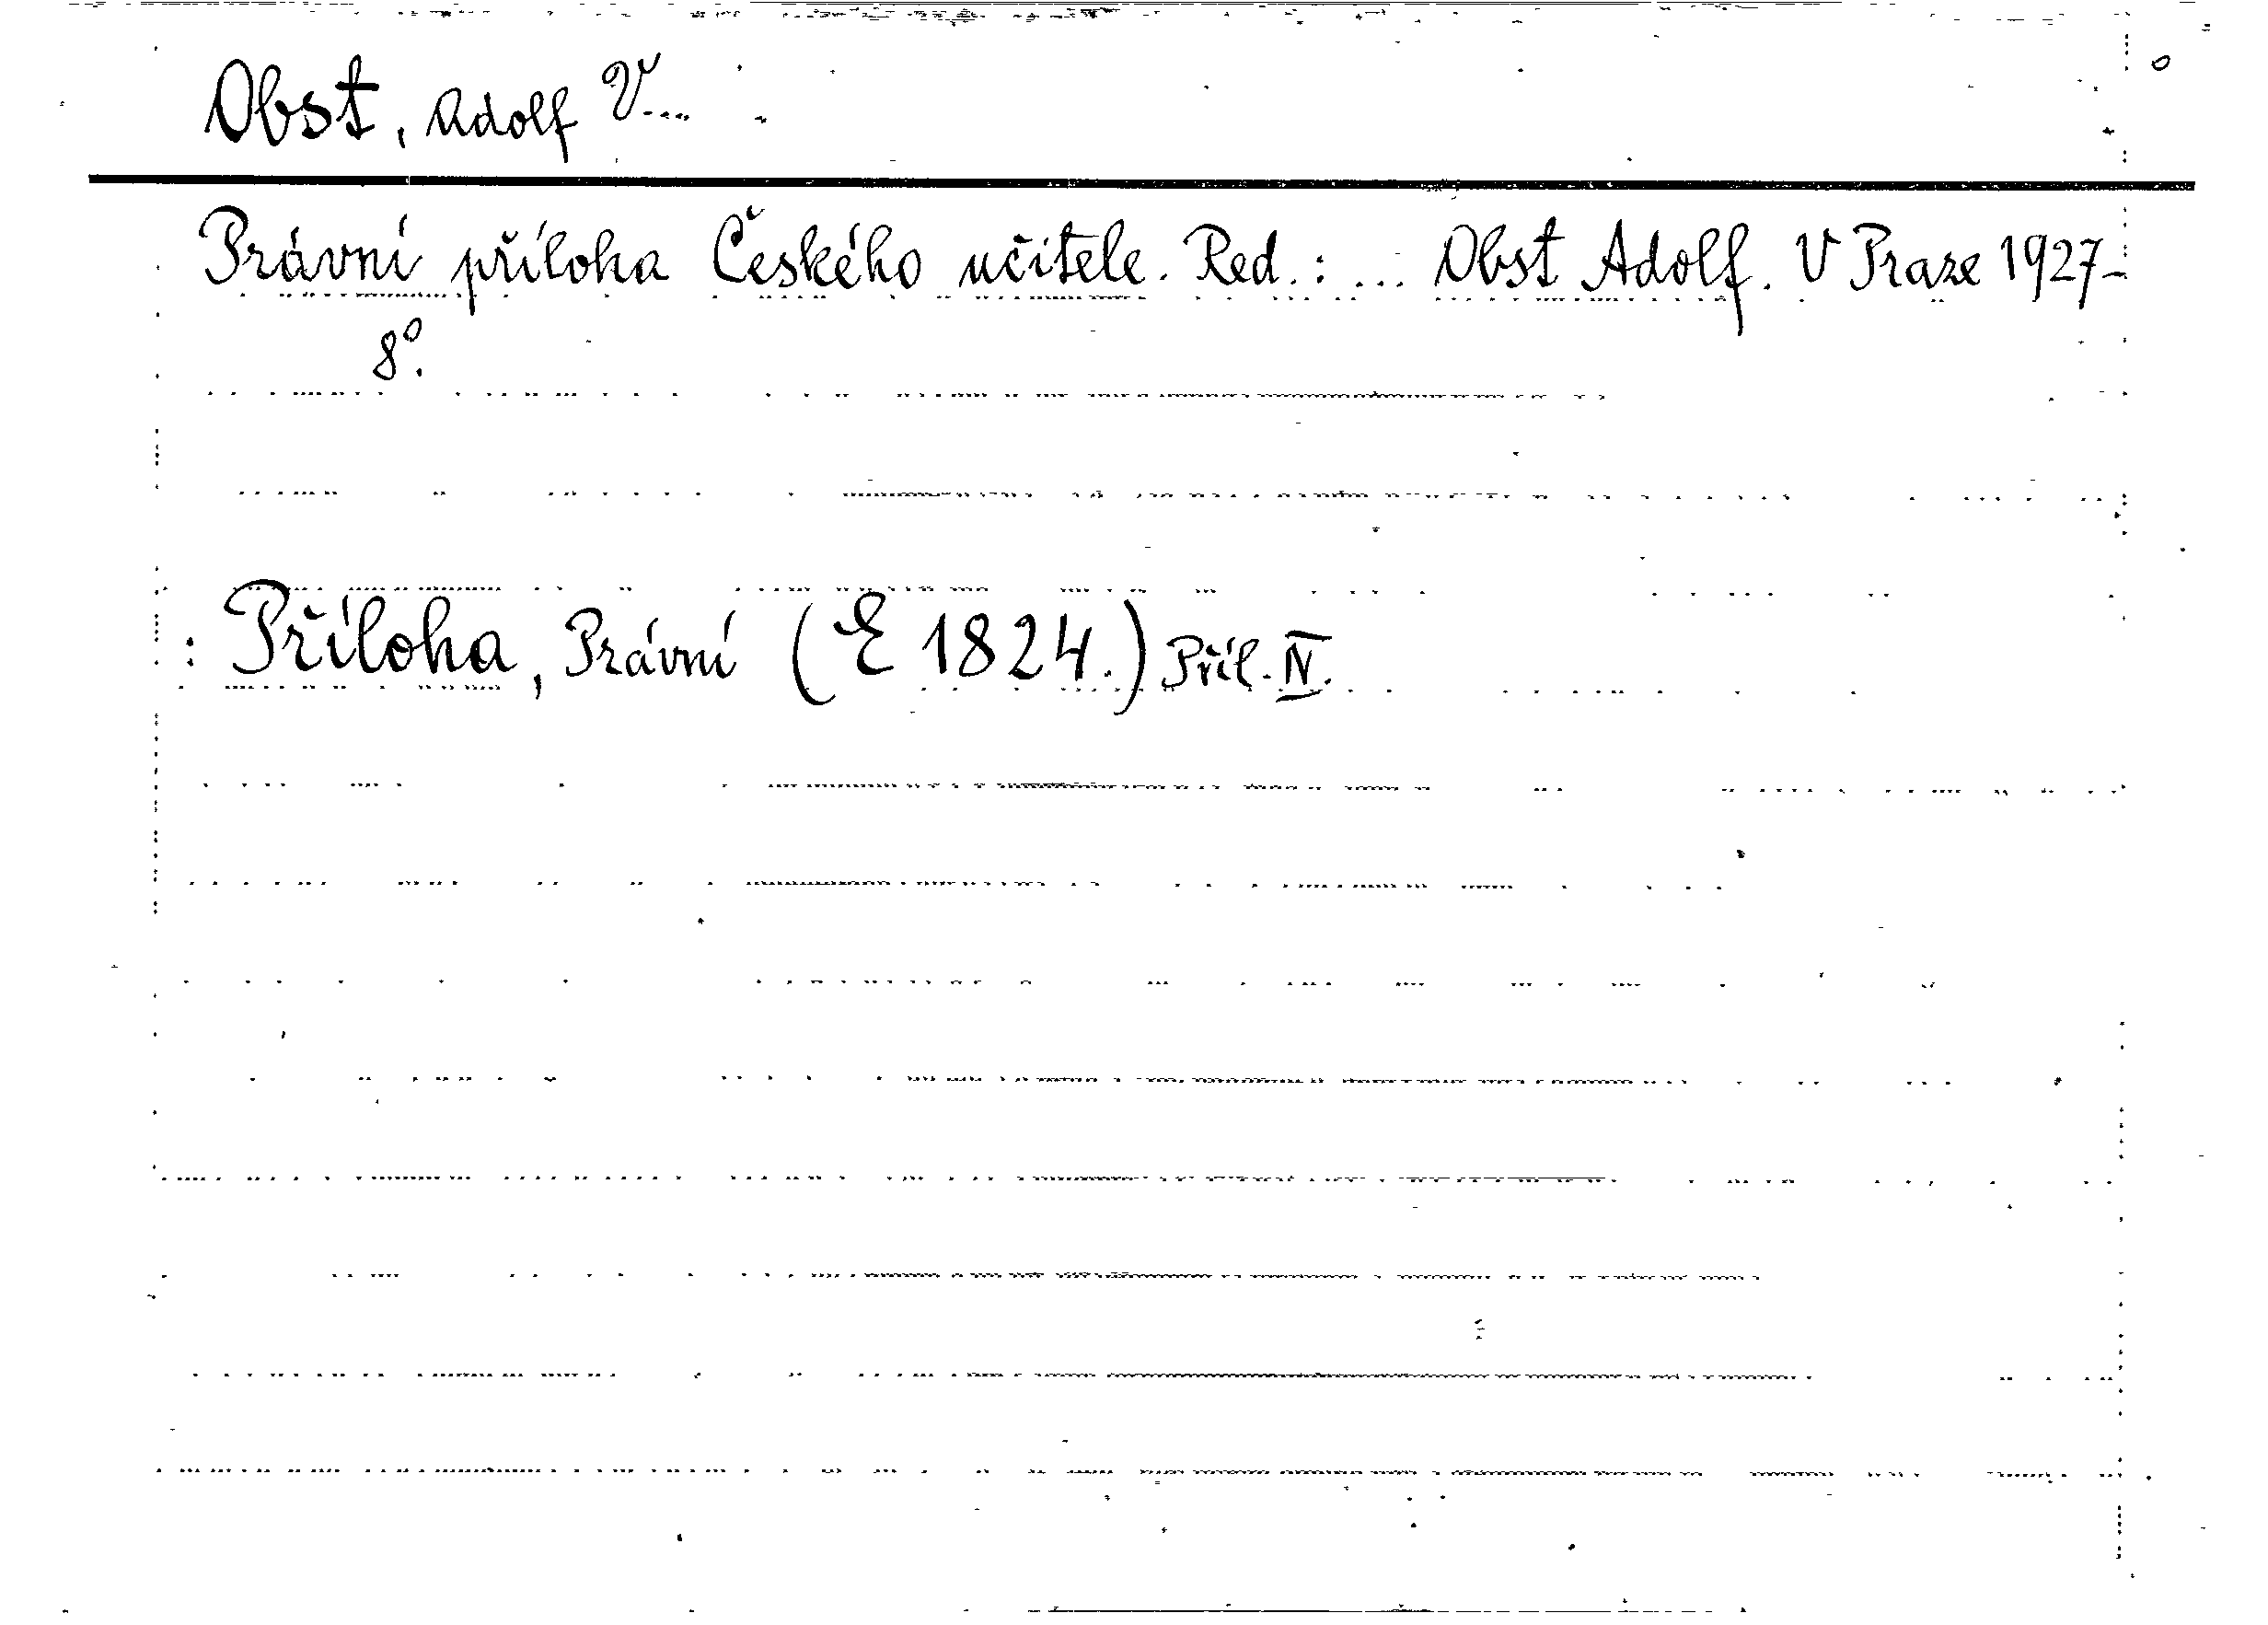 Obst, Adolf V....
Právní příloha Českého učitele. Red.: ... Obst Adolf. V Praze 1927-
8°.
: Příloha, Právní (E 1824.) Příl. IV.